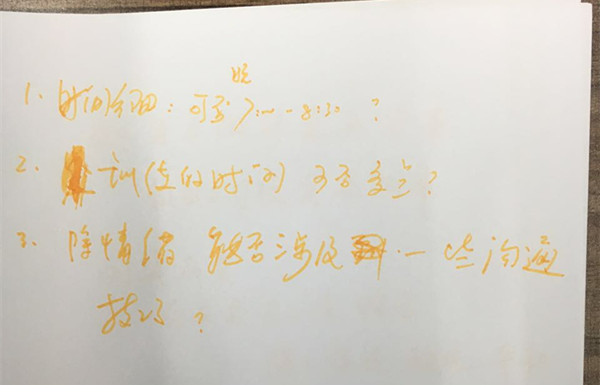 晚
1. 时间细：可否 7:00-8:30 ？
2. 训练的时间可否多点？
3. 除情绪 能否涉及 一些沟通
技巧？